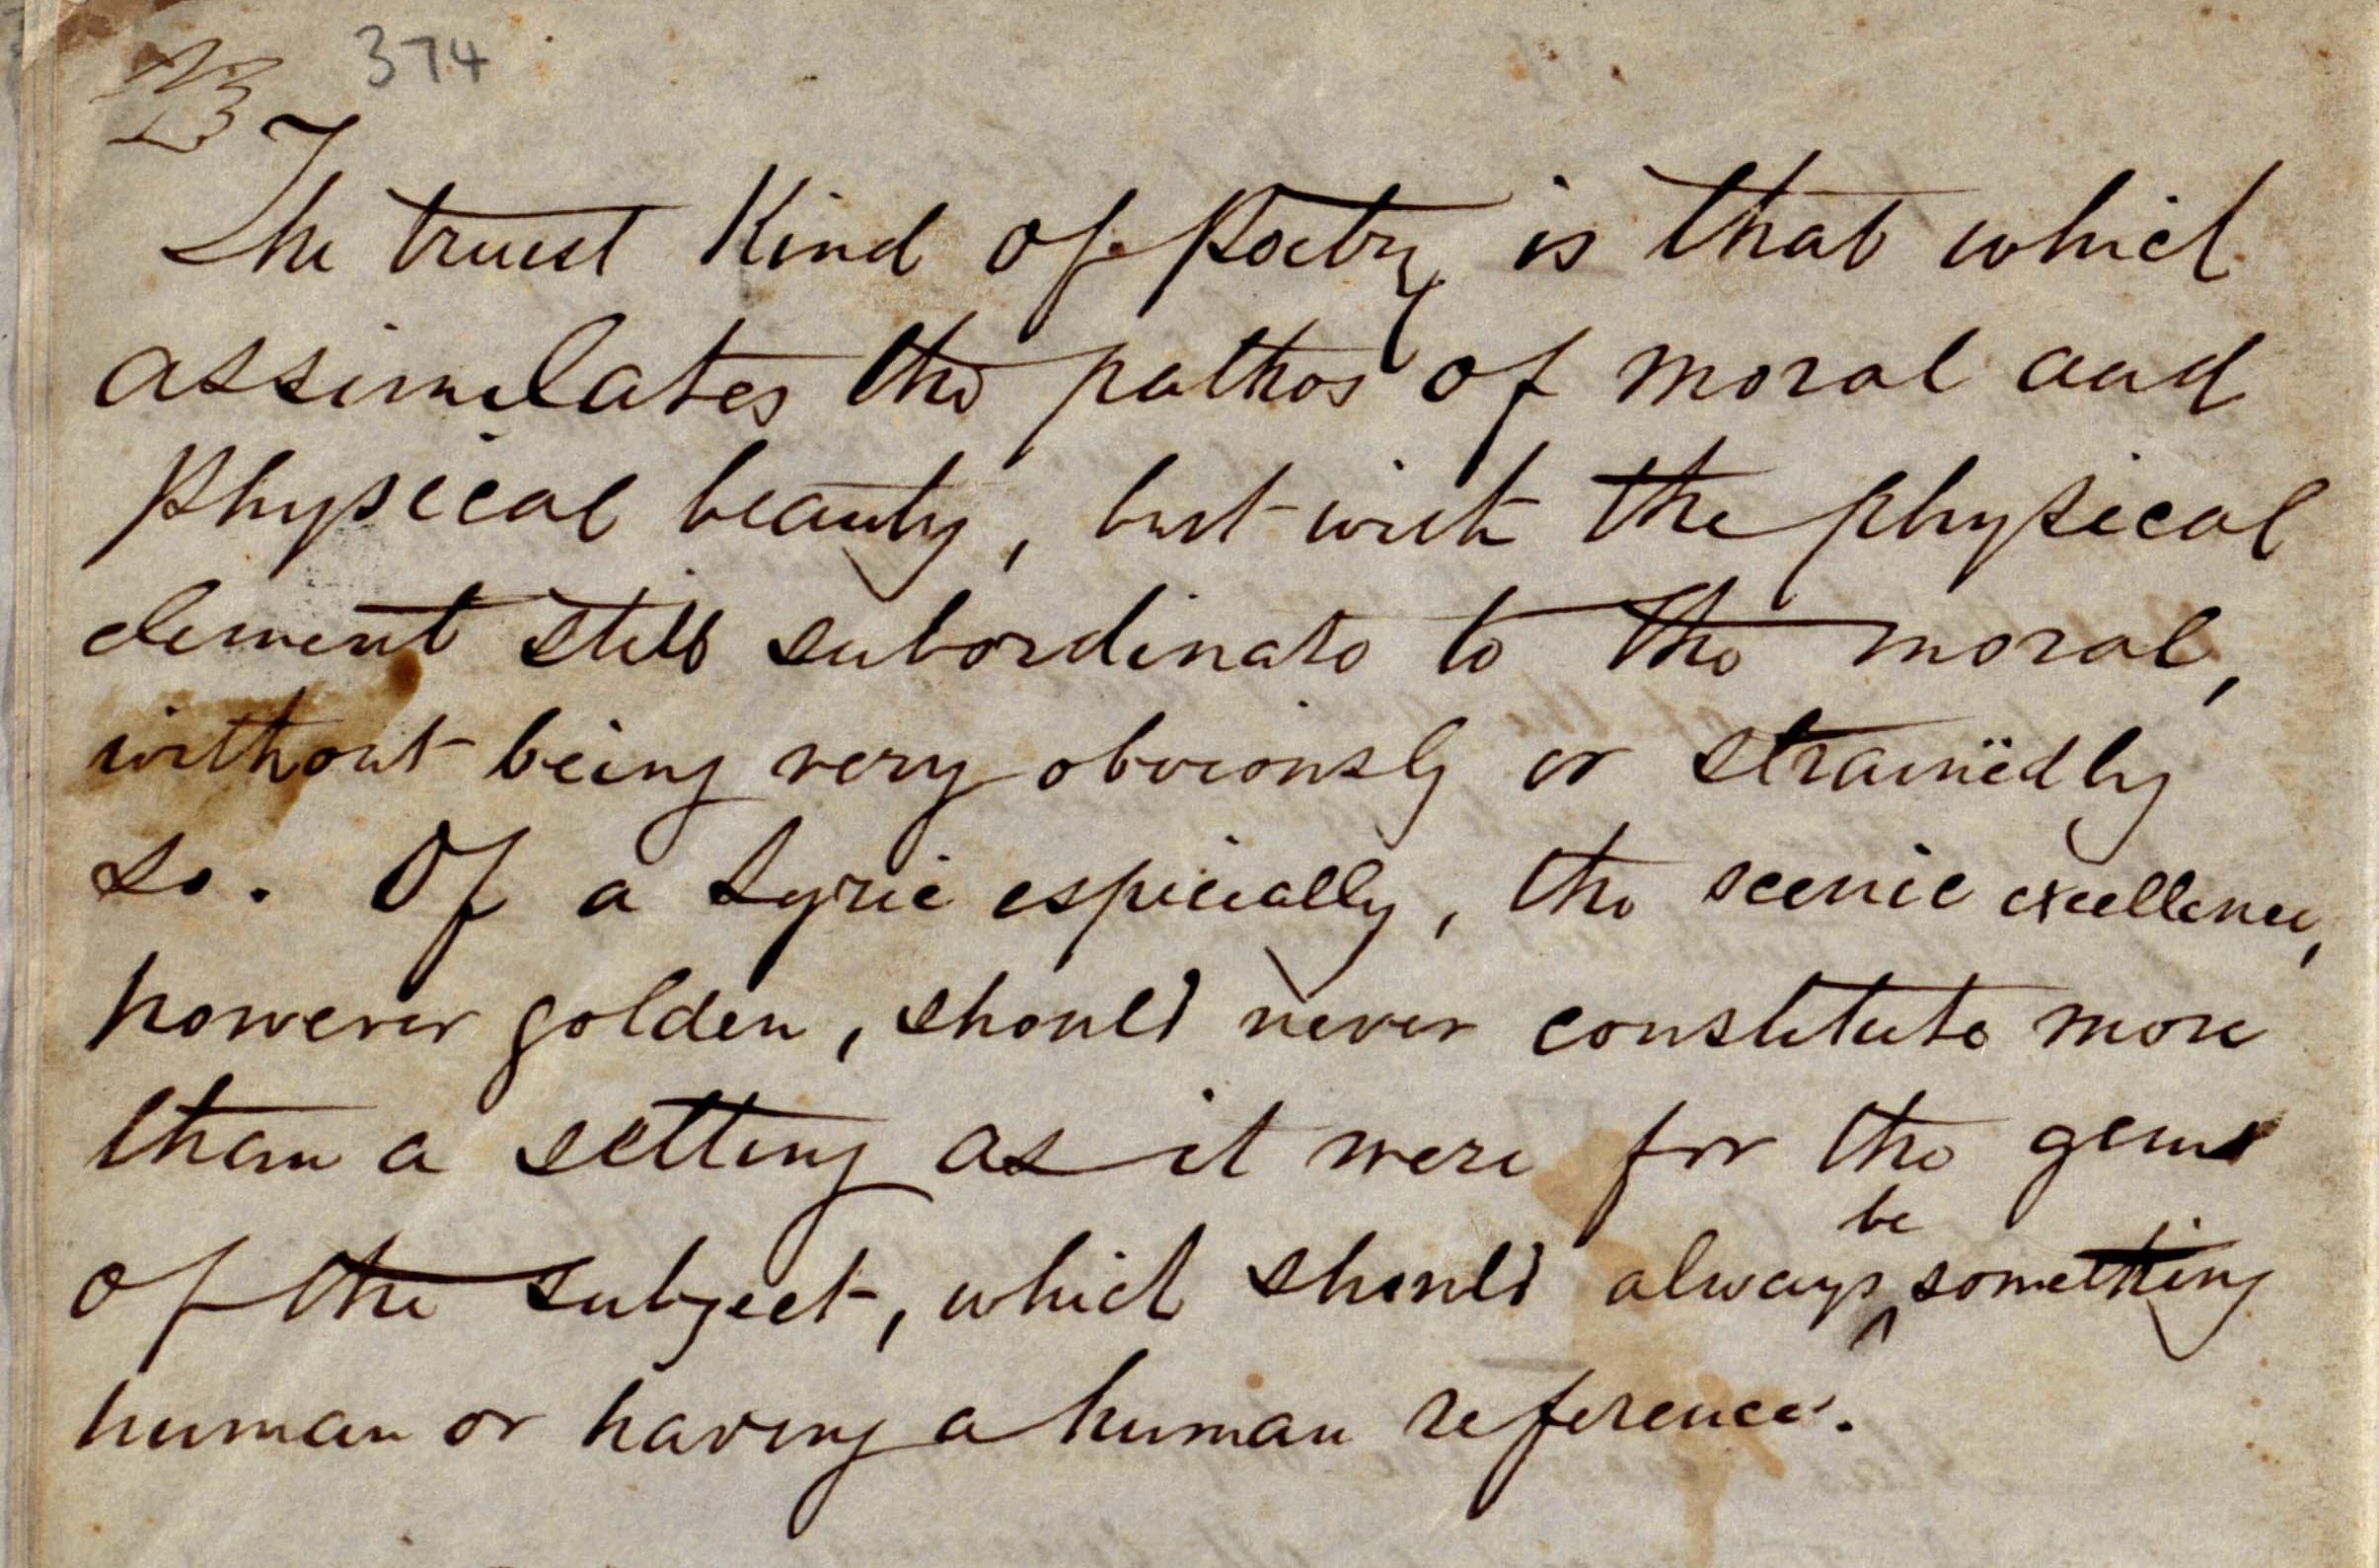 374
The truest Kind of Poetry is that which
assimilates the pathos of moral and
Physical beauty, but with the physical
element still subordinate to the moral,
without being very obviously or strainëdly
so. Of a Lyric especially, the scenic excellence,
however golden, should never constitute more
than a setting as it were for the gems
of the subject, which should always be something
human or having a human reference.